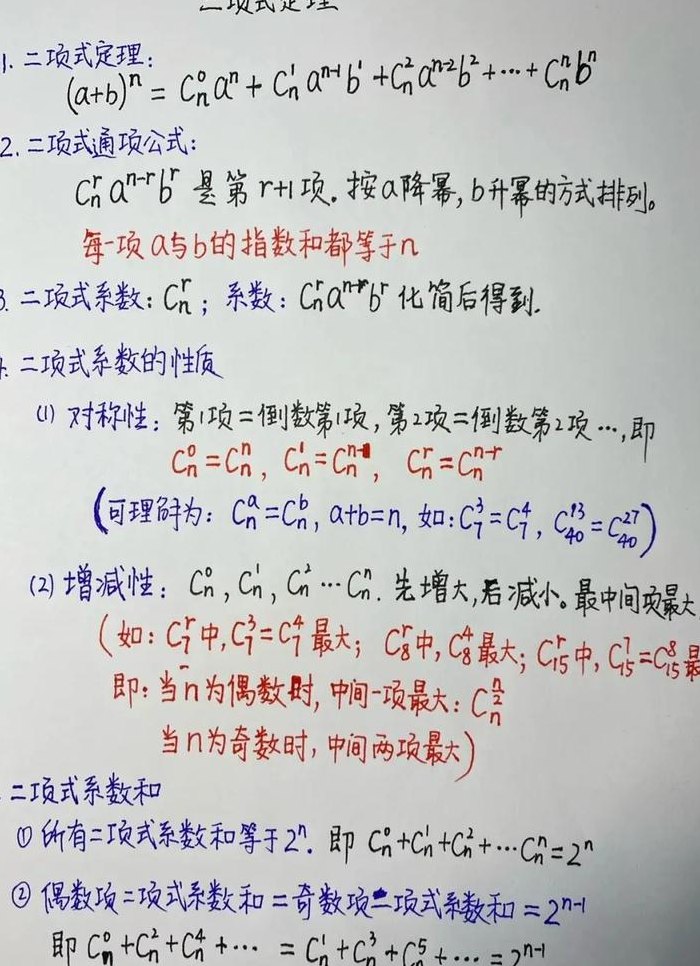 二项式定理
1. 二项式定理:
(a+b)ⁿ = Cₙ⁰aⁿ + Cₙ¹aⁿ⁻¹b¹ + Cₙ²aⁿ⁻²b² + ⋯ + Cₙⁿbⁿ
2. 二项式通项公式:
Cₙʳaⁿ⁻ʳbʳ 是第 r+1 项。按a降幂, b升幂的方式排列。
每一项 a与b的指数和都等于n
3. 二项式系数: Cₙʳ ; 系数: Cₙʳaⁿ⁻ʳbʳ 化简后得到.
4. 二项式系数的性质
(1) 对称性: 第1项=倒数第1项, 第2项=倒数第2项 ⋯, 即
Cₙ⁰=Cₙⁿ, Cₙ¹=Cₙⁿ⁻¹, Cₙʳ=Cₙⁿ⁻ʳ
(可理解为: Cₙᵃ=Cₙᵇ, a+b=n, 如: C₇³=C₇⁴, C₄₀¹³=C₄₀²⁷)
(2) 增减性: Cₙ⁰, Cₙ¹, Cₙ² ⋯ Cₙⁿ. 先增大, 后减小。最中间项最大
(如: C₇ʳ中, C₇³=C₇⁴最大; C₈ʳ中, C₈⁴最大; C₁₅ʳ中, C₁₅⁷=C₁₅⁸最
即: 当n为偶数时, 中间一项最大: C_n^{n/2}
当n为奇数时, 中间两项最大)
二项式系数和
① 所有二项式系数和等于2ⁿ. 即 Cₙ⁰+Cₙ¹+Cₙ²+⋯Cₙⁿ=2ⁿ
② 偶数项二项式系数和=奇数项二项式系数和=2ⁿ⁻¹
即 Cₙ⁰+Cₙ²+Cₙ⁴+⋯ = Cₙ¹+Cₙ³+Cₙ⁵+⋯=2ⁿ⁻¹